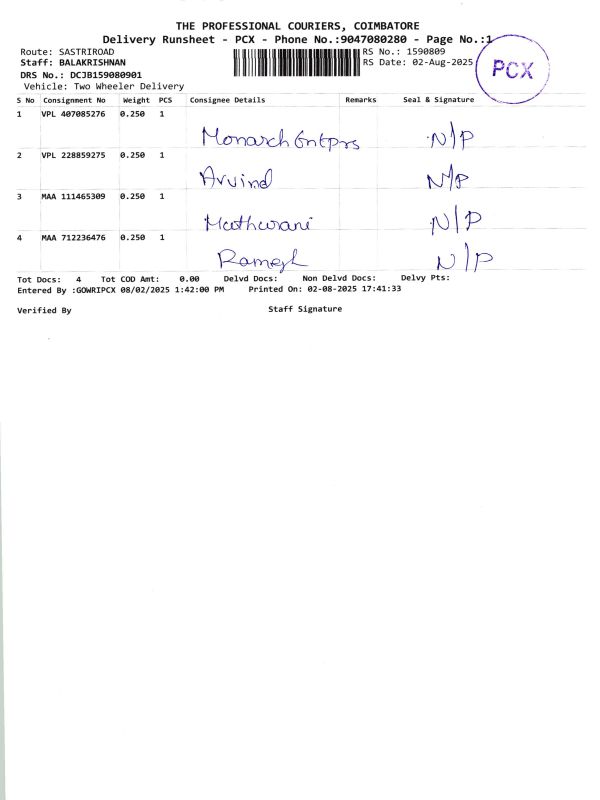 THE PROFESSIONAL COURIERS, COIMBATORE
Delivery Runsheet - PCX - Phone No.:9047080280 - Page No.:1
Route: SASTRIROAD RS No.: 1590809
Staff: BALAKRISHNAN RS Date: 02-Aug-2025
PCX
DRS No.: DCJB159080901
Vehicle: Two Wheeler Delivery
S No Consignment No Weight PCS Consignee Details Remarks Seal & Signature
1 VPL 407085276 0.250 1
Monarch Entprs N/P
2 VPL 228859275 0.250 1
Arvind N/P
3 MAA 111465309 0.250 1
N/P
4 MAA 712236476 0.250 1
Ramesh N/P
Tot Docs: 4 Tot COD Amt: 0.00 Delvd Docs: Non Delvd Docs: Delvy Pts:
Entered By :GOWRIPCX 08/02/2025 1:42:00 PM Printed On: 02-08-2025 17:41:33
Verified By Staff Signature